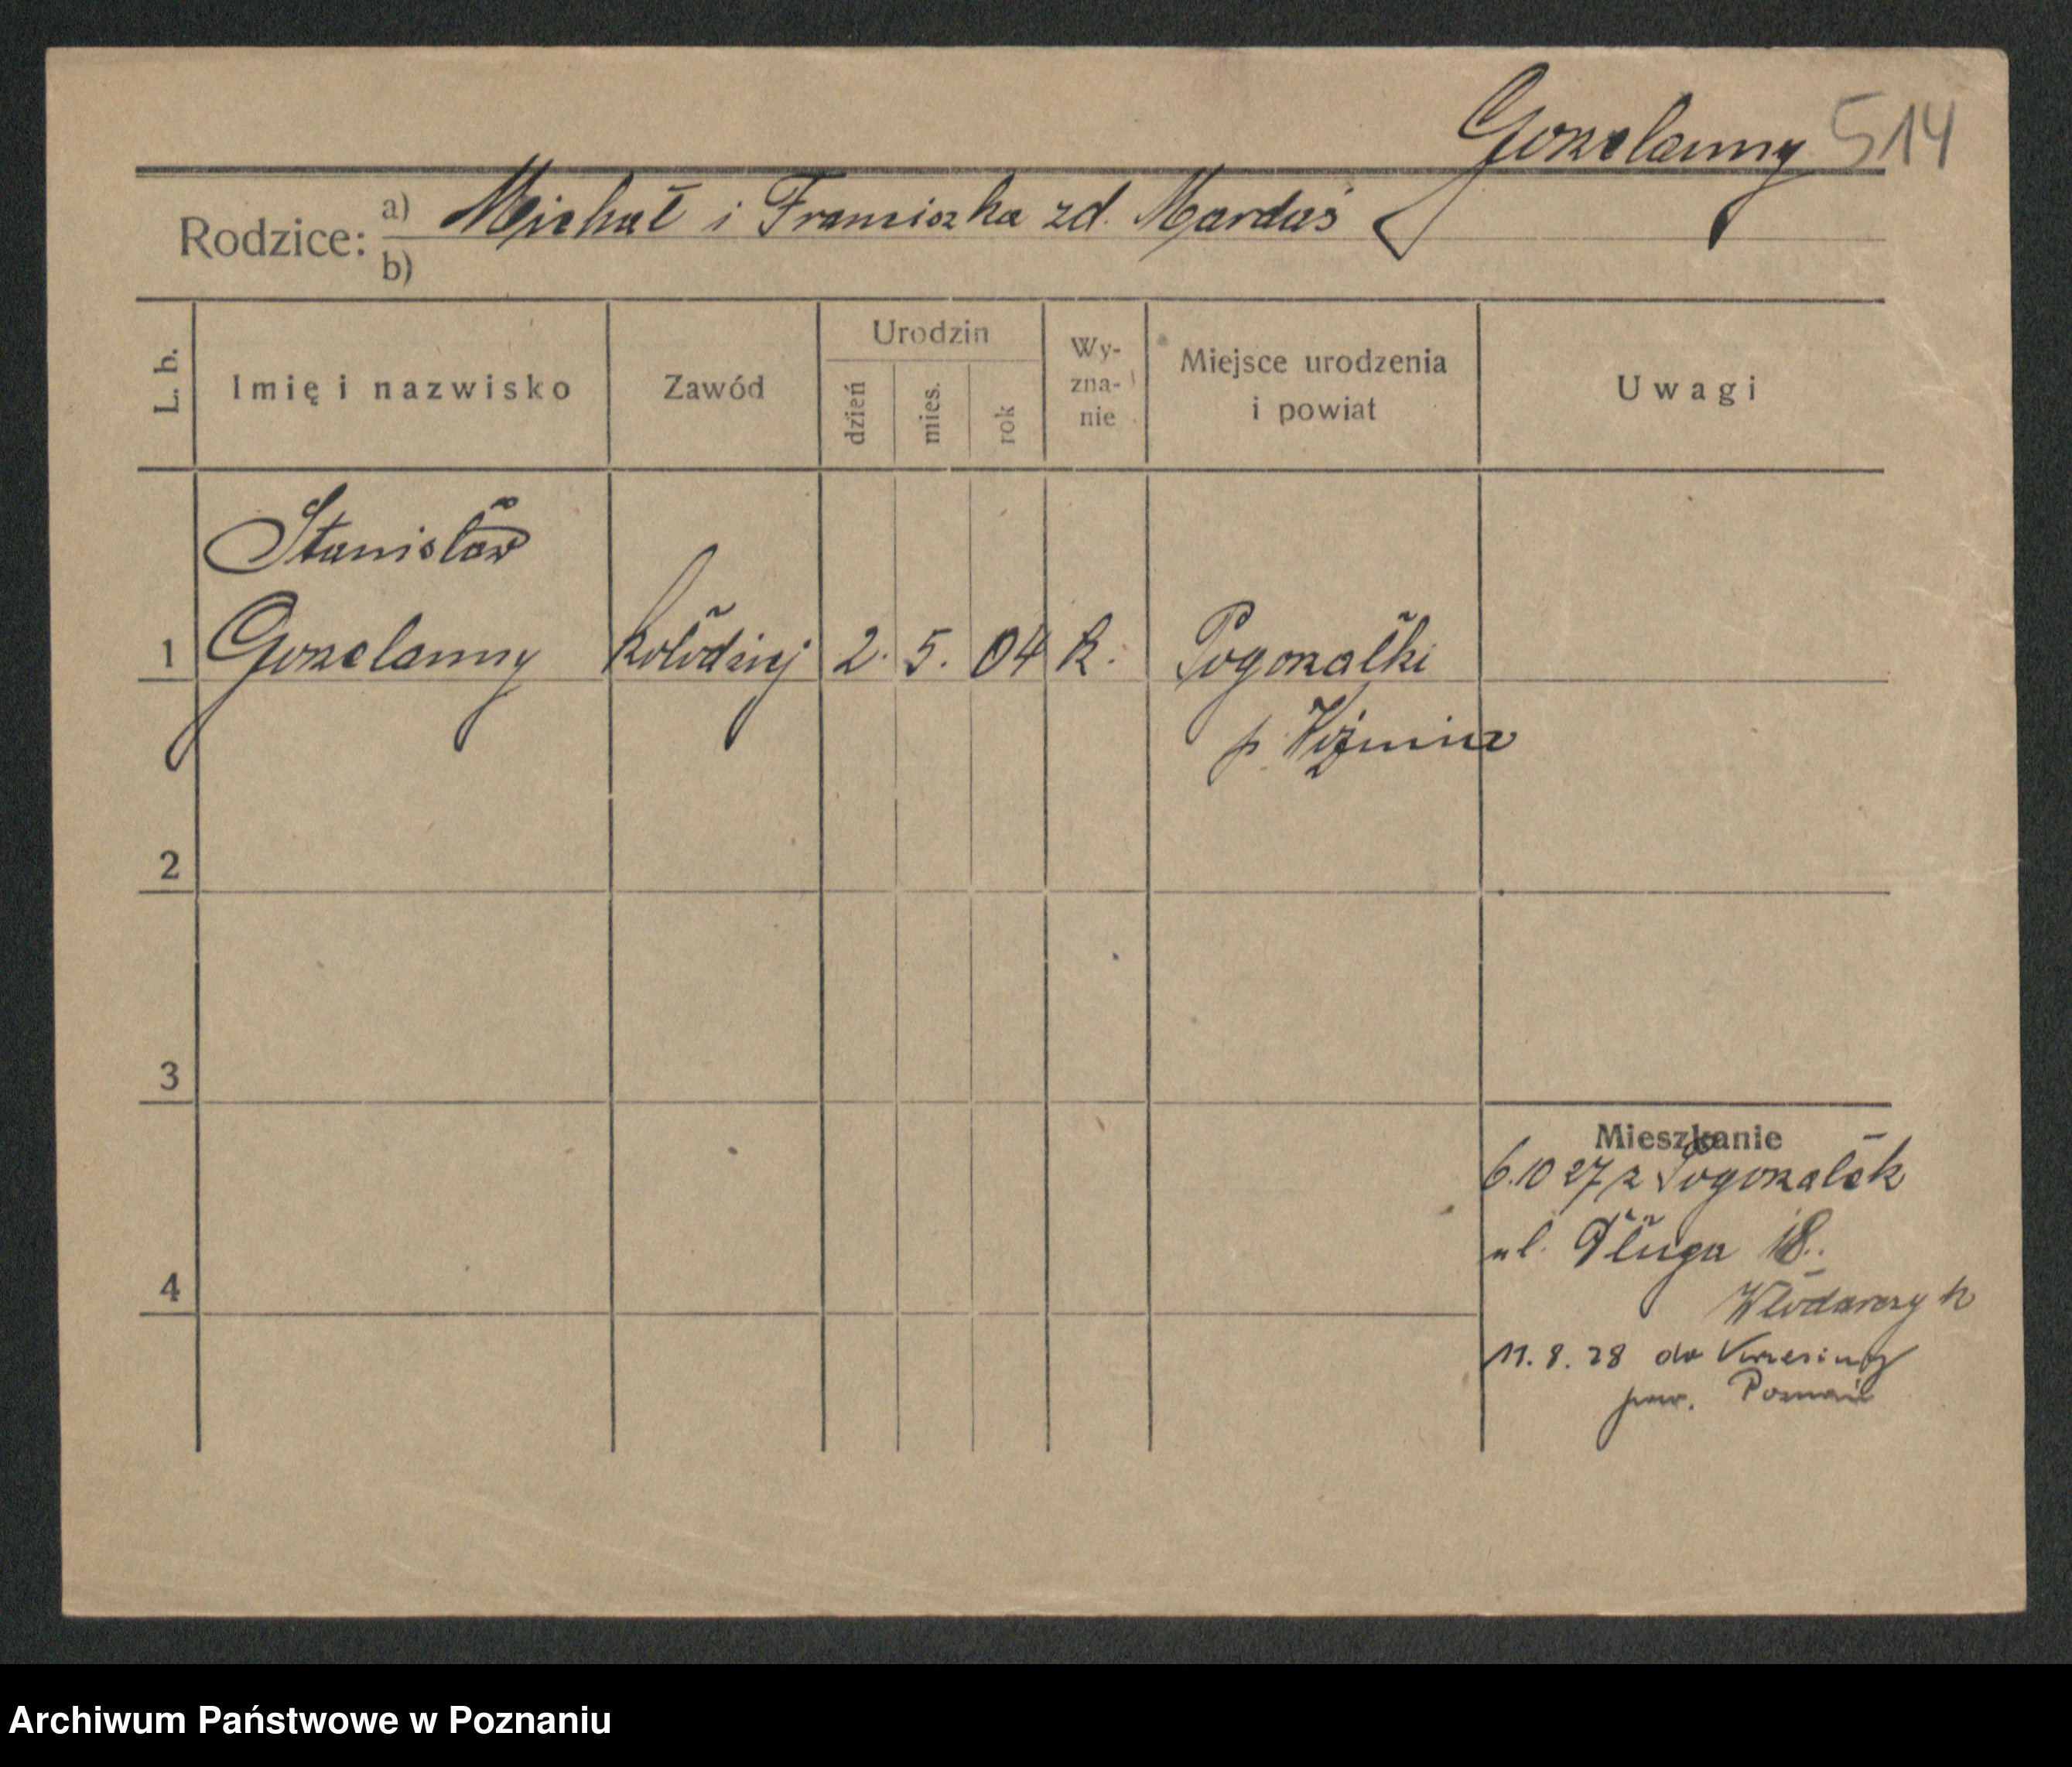 Gorzelanny 514
Rodzice: a) Michał i Franciszka zd. Mardaś
b)
L. b.
Imię i nazwisko
Zawód
Urodzin
dzień
mies.
rok
Wy-
zna-
nie
Miejsce urodzenia
i powiat
Uwagi
Stanisław
1 Gorzelanny kołodziej 2. 5. 04 k. Pogorzałki
p.
2
3
4
Mieszkanie
6.10 27 z Pogorzałek
ul. Długa 18.
Włodarczyk
11.8.28 do Krzesiny
pow. Poznań
Archiwum Państwowe w Poznaniu